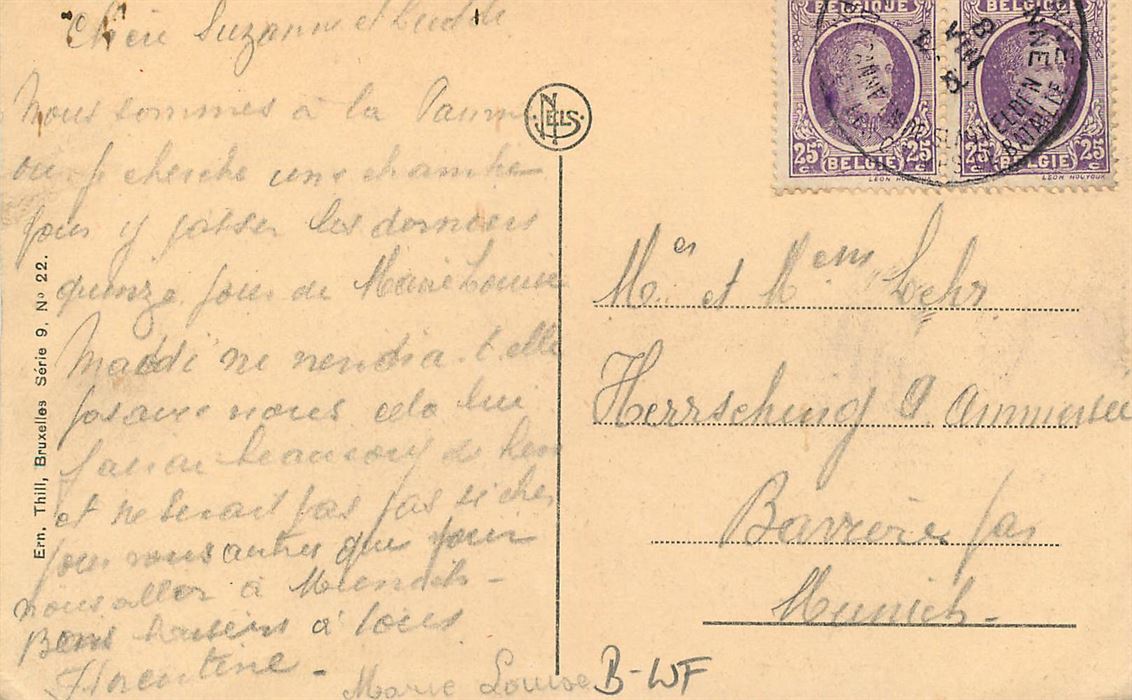 Chère Suzanne et
Nous sommes à la Panne
où je cherche une chambre
pour y passer les derniers
quinze jours de Marie Louise
Maddi ne viendra-t-elle
pas avec nous cela lui
ferait beaucoup de bien
et ne serait pas plus cher
pour vous autres que pour
nous aller à Munich -
Bons baisers à tous
Florentine -
Marie Louise
Ern. Thill, Bruxelles Série 9, No 22.
NELS
BELGIQUE
25c BELGIË 25c
LEON HOUYOUX
BELGIQUE
25c BELGIË 25c
LEON HOUYOUX
Mr et Mem Lehr
Herrsching a. Ammersee
Bavière par
Munich
B-WF